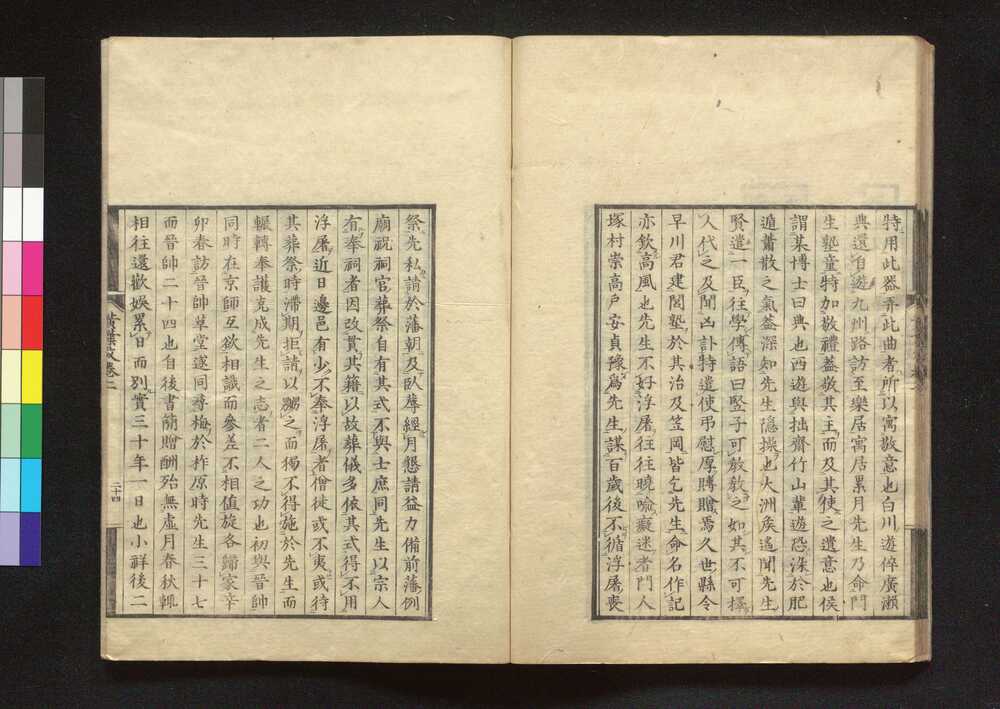 特用此器弄此曲者所以寓敬意也白川遊倅廣瀬
典還自遊九州路訪至樂居寓居累月先生乃命門
生塾童特加敬禮蓋敬其主而及其使之遺意也侯
謂某博士曰典也西遊與拙齋竹山輩遊恐染於肥
遁蕭散之氣蓋深知先生隱操也大洲矦遙聞先生
賢遣一臣往學傳語曰竪子可教教之如其不可擇
人代之及聞凶訃特遣使弔慰厚賻贈焉久世縣令
早川君建閣塾於其治及笠岡皆乞先生命名作記
亦欽高風也先生不好浮屠往往曉喩癡迷者門人
塚村崇高戶安貞豫爲先生謀百歲後不循浮屠喪
祭先私請於藩朝及臥蓐經月懇請益力備前藩例
廟祝祠官葬祭自有其式不與士庶同先生以宗人
有奉祠者因改貫其籍以故葬儀多依其式得不用
浮屠近日邊邑有少不奉浮屠者僧徒或不夷或待
其葬祭時滯期拒請以嬲之而獨不得施於先生而
輾轉奉護克成先生之志者二人之功也初與晉帥
同時在京師互欲相識而參差不相値旋各歸家辛
卯春訪晉帥草堂遂同尋梅於柞原時先生三十七
而晉帥二十四也自後書簡贈酬殆無虛月春秋輒
相往還歡娛累日而別實三十年一日也小祥後二
二十四